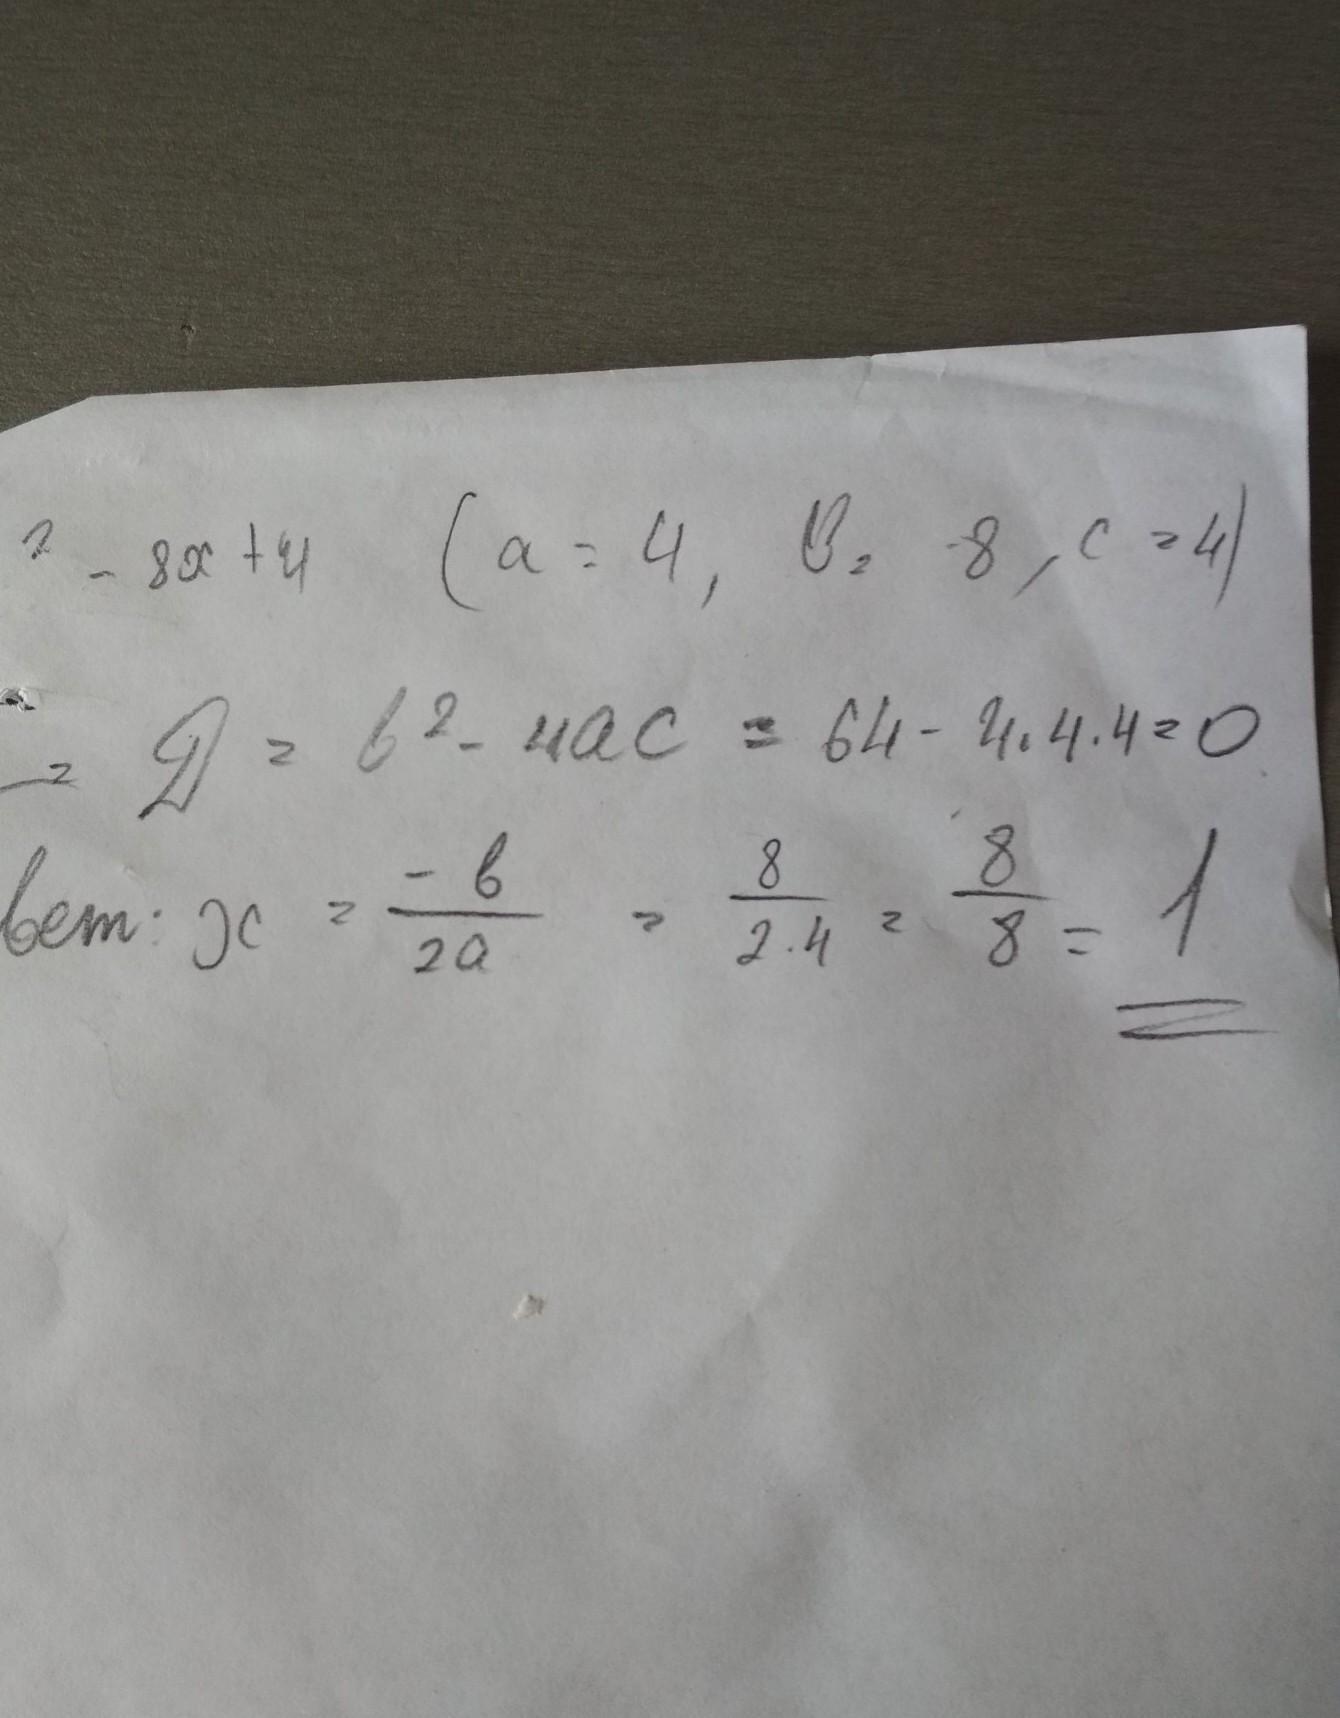 ² - 8x + 4 (a = 4, b = -8, c = 4)
= D = b² - 4ac = 64 - 4·4·4 = 0
вет: x = -b/2a = 8/2·4 = 8/8 = 1